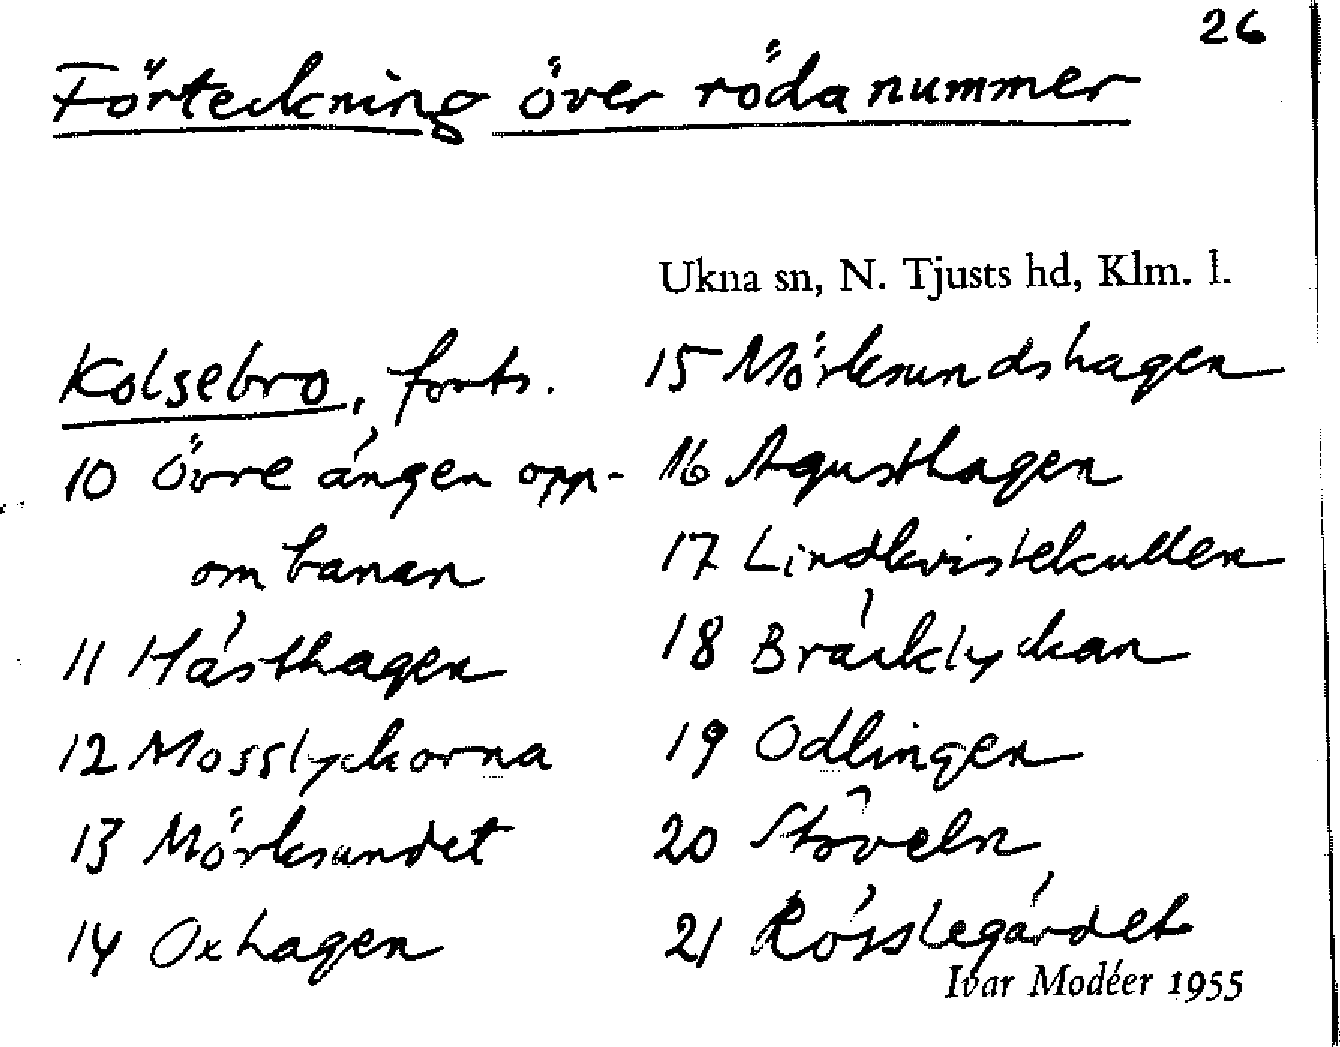 26
Förteckning över röda nummer
Ukna sn, N. Tjusts hd, Klm. l.
Kolsebro, forts.
10 Övre ängen opp-
om banan
11 Hästhagen
12 Mosslyckorna
13 Mörksundet
14 Oxhagen
15 Mörksundshagen
16 Agusthagen
17 Lindkvistekullen
18 Bräcklyckan
19 Odlingen
20 Stöveln
21 Rösslegärdet
Ivar Modéer 1955